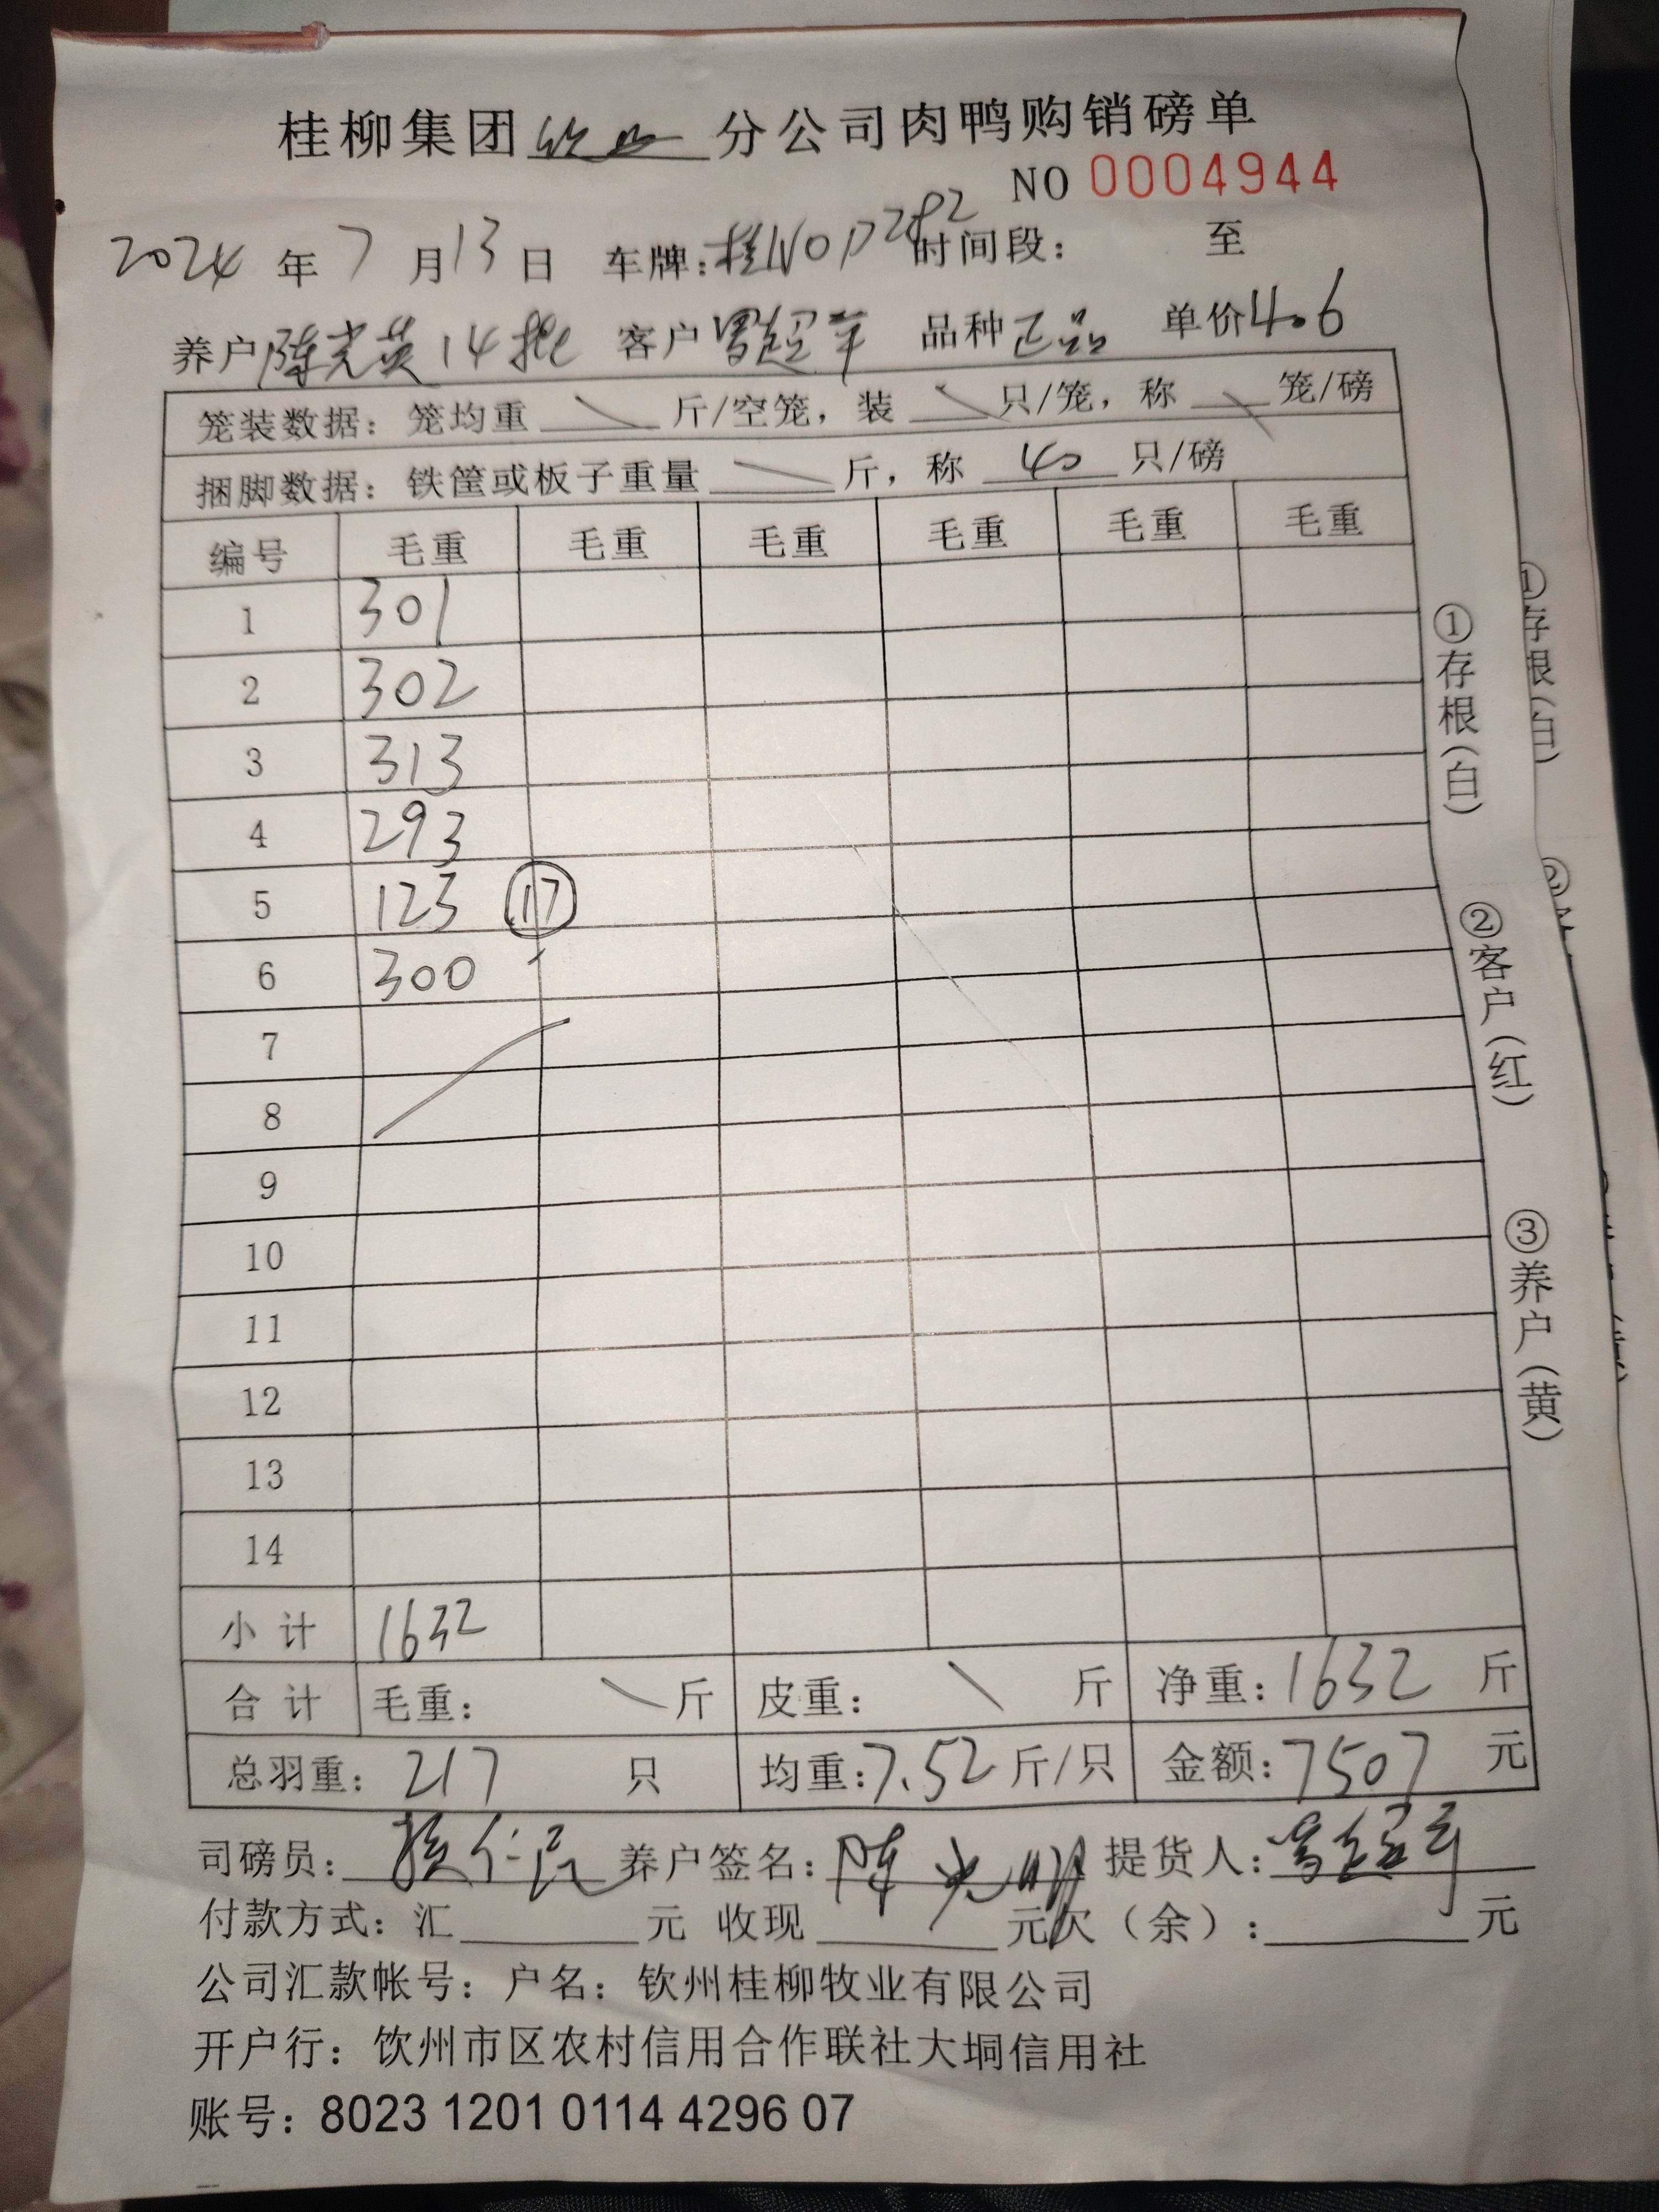 桂柳集团 分公司肉鸭购销磅单
NO 0004944
2024 年 7 月 13 日 车牌: 桂N0P282 时间段: 至
养户 陈光英14批 客户 品种 正品 单价 4.6
笼装数据: 笼均重 斤/空笼, 装 只/笼, 称 笼/磅
捆脚数据: 铁筐或板子重量 斤, 称 40 只/磅
编号 毛重 毛重 毛重 毛重 毛重 毛重
1 301
2 302
3 313
4 293
5 123 17
6 300
7
8
9
10
11
12
13
14
小计 1632
合计 毛重: 斤 皮重: 斤 净重: 1632 斤
总羽重: 217 只 均重: 7.52 斤/只 金额: 7507 元
司磅员: 养户签名: 陈光明 提货人:
付款方式: 汇 元 收现 元 欠(余): 元
公司汇款帐号: 户名: 钦州桂柳牧业有限公司
开户行: 钦州市区农村信用合作联社大垌信用社
账号: 8023 1201 0114 4296 07
①存根(白)
②客户(红)
③养户(黄)
①存根(白)